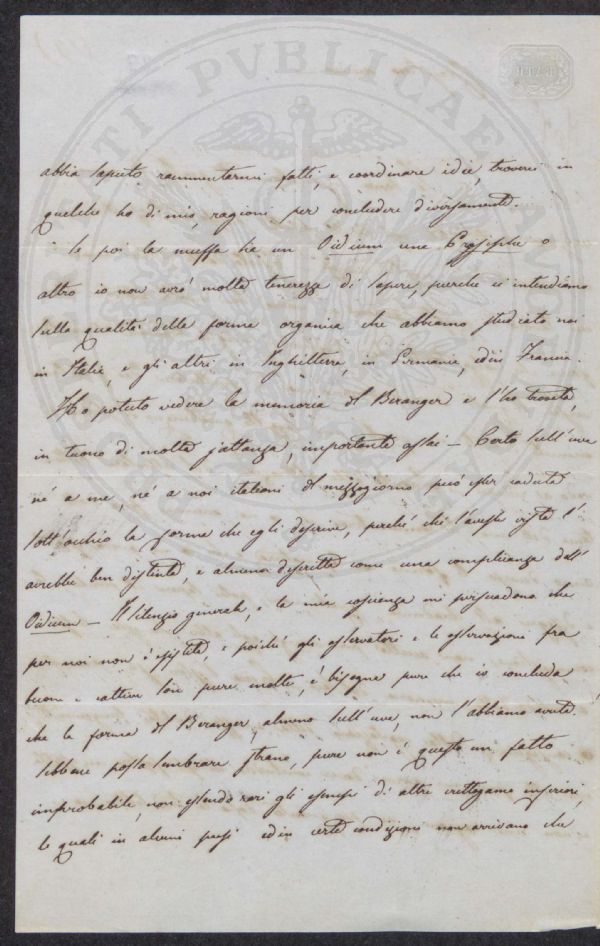 abbia saputo rammentarmi fatti, e coordinare idee, troverei in
qualche ho di mio, ragioni per concludere diversamente.
Se poi la muffa ha un Oidium una Erysiphe o
altro io non avrò molta tenerezza di sapere, purché ci intendiamo
sulla qualità della forma organica che abbiamo studiato noi
in Italia, e gli altri in Inghilterra, in Germania, ed in Francia.
Ho potuto vedere la memoria del Beranger e l'ho trovata,
in tuono di molta jattanza, importante assai — Certo sull'uva
né a me, né a noi italiani del mezzogiorno può esser caduta
sott'occhio la forma che egli descrive, perché chi l'avesse vista l'
avrebbe ben distinta, e almeno descritta come una complicanza dell'
Oidium — Il silenzio generale, e la mia coscienza mi persuadono che
per noi non è esistita, e poiché gli osservatori e le osservazioni fra
buone e cattive son pure molte, è bisogna pure che io concluda
che la forma del Beranger, almeno sull'uva, non l'abbiamo avuta.
Sebbene possa sembrare strano, pure non è questo un fatto
improbabile, non essendo rari gli esempi di altre crittogame inferiori,
le quali in alcuni paesi ed in certe condizioni non arrivano che